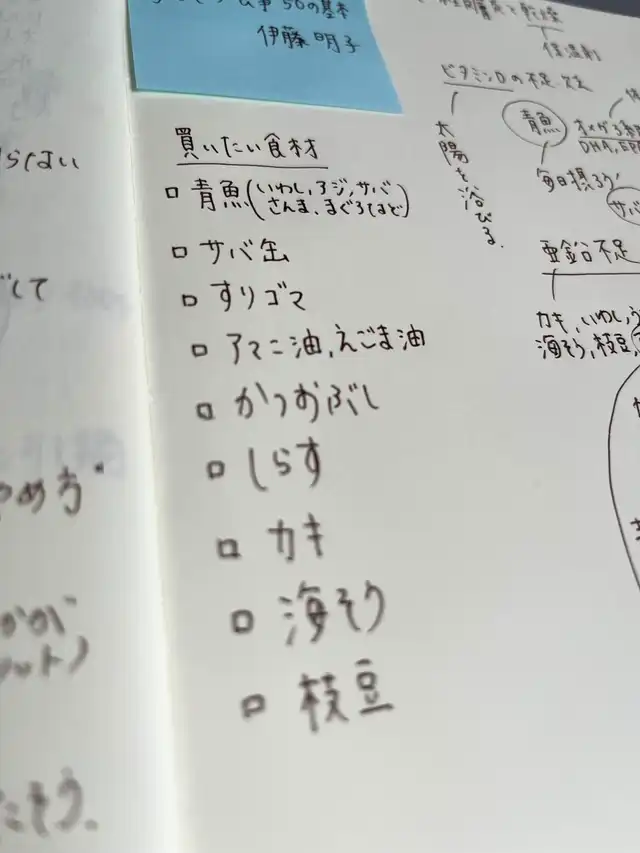 50の基本
伊藤 明子
買いたい食材
□ 青魚(いわし,アジ,サバ
さんま、まぐろなど)
□ サバ缶
□ すりゴマ
□ アマニ油,えごま油
□ かつおぶし
□ しらす
□ カキ
□ 海そう
□ 枝豆
と乾燥
保湿剤
ビタミンDの不足
太陽を浴びる。
青魚
DHA,EP
毎日摂ろう
サバ
亜鉛不足
カキ,いわし,う
海そう,枝豆,
らない
して
やめ方"
そう.